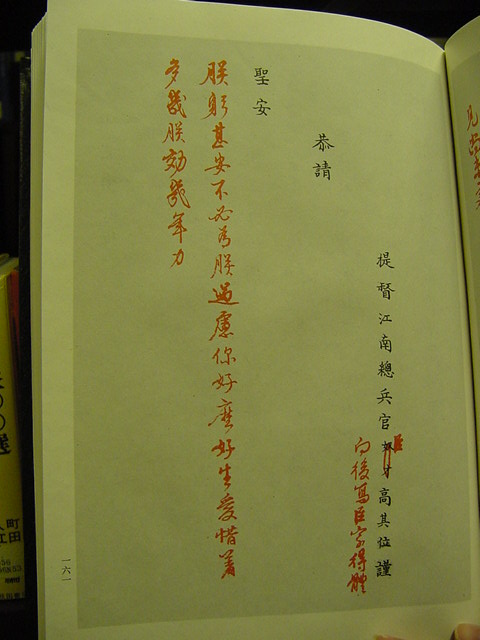 提督江南總兵官奴才高其位謹
臣
向後寫臣字得體
恭請
聖安
朕躬甚安不必為朕過慮你好麼好生愛惜着
多幾朕効幾年力
一六一
見
町
田